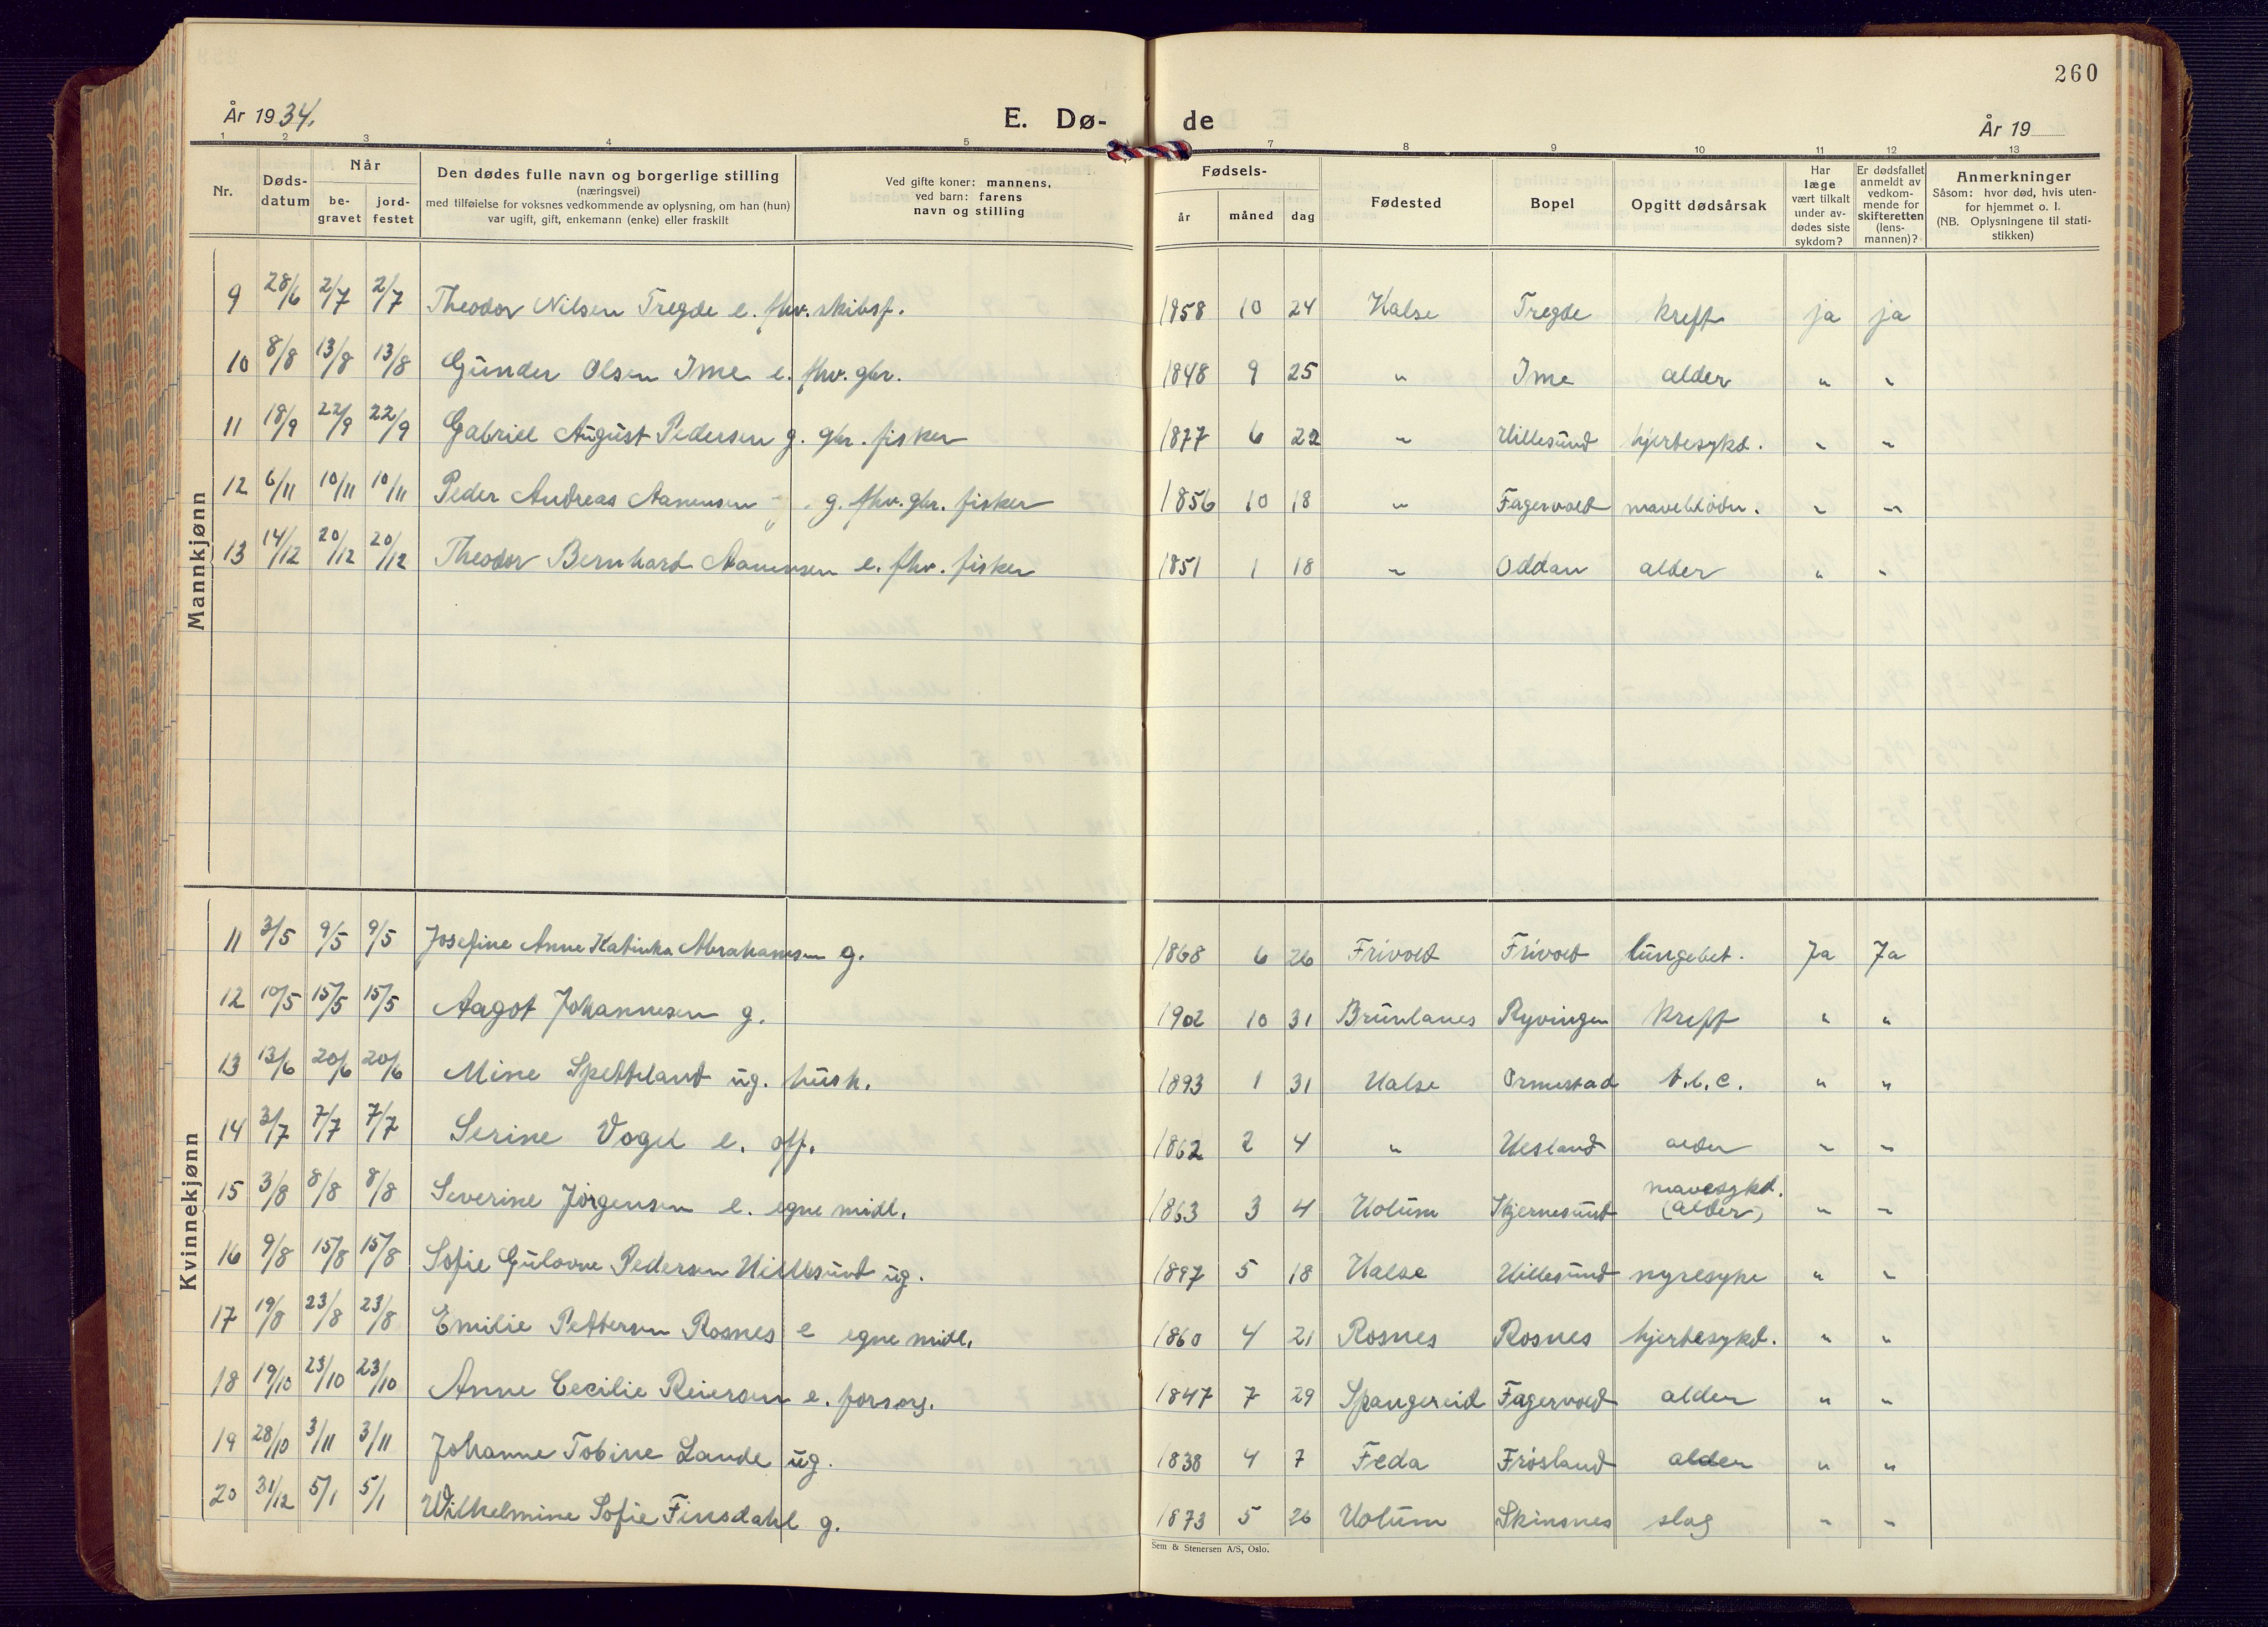 260
År 1934.
E. Dø-
de
År 19
1 2 3 4 5 7 8 9 10 11 12 13
Nr.
Døds-
datum
Når
be-
gravet
jord-
festet
Den dødes fulle navn og borgerlige stilling
(næringsvei)
med tilføielse for voksnes vedkommende av oplysning, om han (hun)
var ugift, gift, enkemann (enke) eller fraskilt
Ved gifte koner: mannens,
ved barn: farens
navn og stilling
Fødsels-
år
måned
dag
Fødested
Bopel
Opgitt dødsårsak
Har
læge
vært tilkalt
under av-
dødes siste
sykdom?
Er dødsfallet
anmeldt av
vedkom-
mende for
skifteretten
(lens-
mannen)?
Anmerkninger
Såsom: hvor død, hvis uten-
for hjemmet o. l.
(NB. Oplysningene til stati-
stikken)
Mannkjønn
9 28/6 2/7 2/7 Theodor Nilsen Tregde e. fhv. skibsf. 1858 10 24 Halse Tregde kreft ja ja
10 8/8 13/8 13/8 Gunder Olsen Ime e. fhv. gbr. 1848 9 25 " Ime alder " "
11 18/9 22/9 22/9 Gabriel August Pedersen g. gbr. fisker 1877 6 22 " Hillesund hjertesykd. " "
12 6/11 10/11 10/11 Peder Andreas Aanensen g. fhv. gbr. fisker 1856 10 18 " Fagervold maveblödn. " "
13 14/12 20/12 20/12 Theodor Bernhard Aanensen e. fhv. fisker 1851 1 18 " Oddan alder " "
Kvinnekjønn
11 3/5 9/5 9/5 Josefine Anne Katinka Abrahamsen g. 1868 6 26 Frivold Frivold lungebet. Ja Ja
12 10/5 15/5 15/5 Aagot Johannesen g. 1902 10 31 Brunlanes Ryvingen Kreft " "
13 13/6 20/6 20/6 Mine Spetteland ug. hush. 1893 1 31 Halse Ormestad t.b.c. " "
14 3/7 7/7 7/7 Serine Vogel e. off. 1862 2 4 " Hesland alder " "
15 3/8 8/8 8/8 Severine Jörgensen e. egne midl. 1863 3 4 Holum Skjernesund mavesykd. (alder) " "
16 9/8 15/8 15/8 Sofie Gulovne Pedersen Hillesund ug. 1897 5 18 Halse Hillesund nyresyke " "
17 19/8 23/8 23/8 Emilie Pettersen Rosnes e egne midl. 1860 4 21 Rosnes Rosnes hjertesykd. " "
18 19/10 23/10 23/10 Anne Cecilie Reiersen e. forsorg. 1847 7 29 Spangereid Fagervold alder " "
19 28/10 3/11 3/11 Johanne Tobine Lande ug. 1838 4 7 Feda Frösland alder " "
20 31/12 5/1 5/1 Wilhelmine Sofie Finsdahl g. 1873 5 26 Holum Skinsnes slag " "
Sem & Stenersen A/S, Oslo.